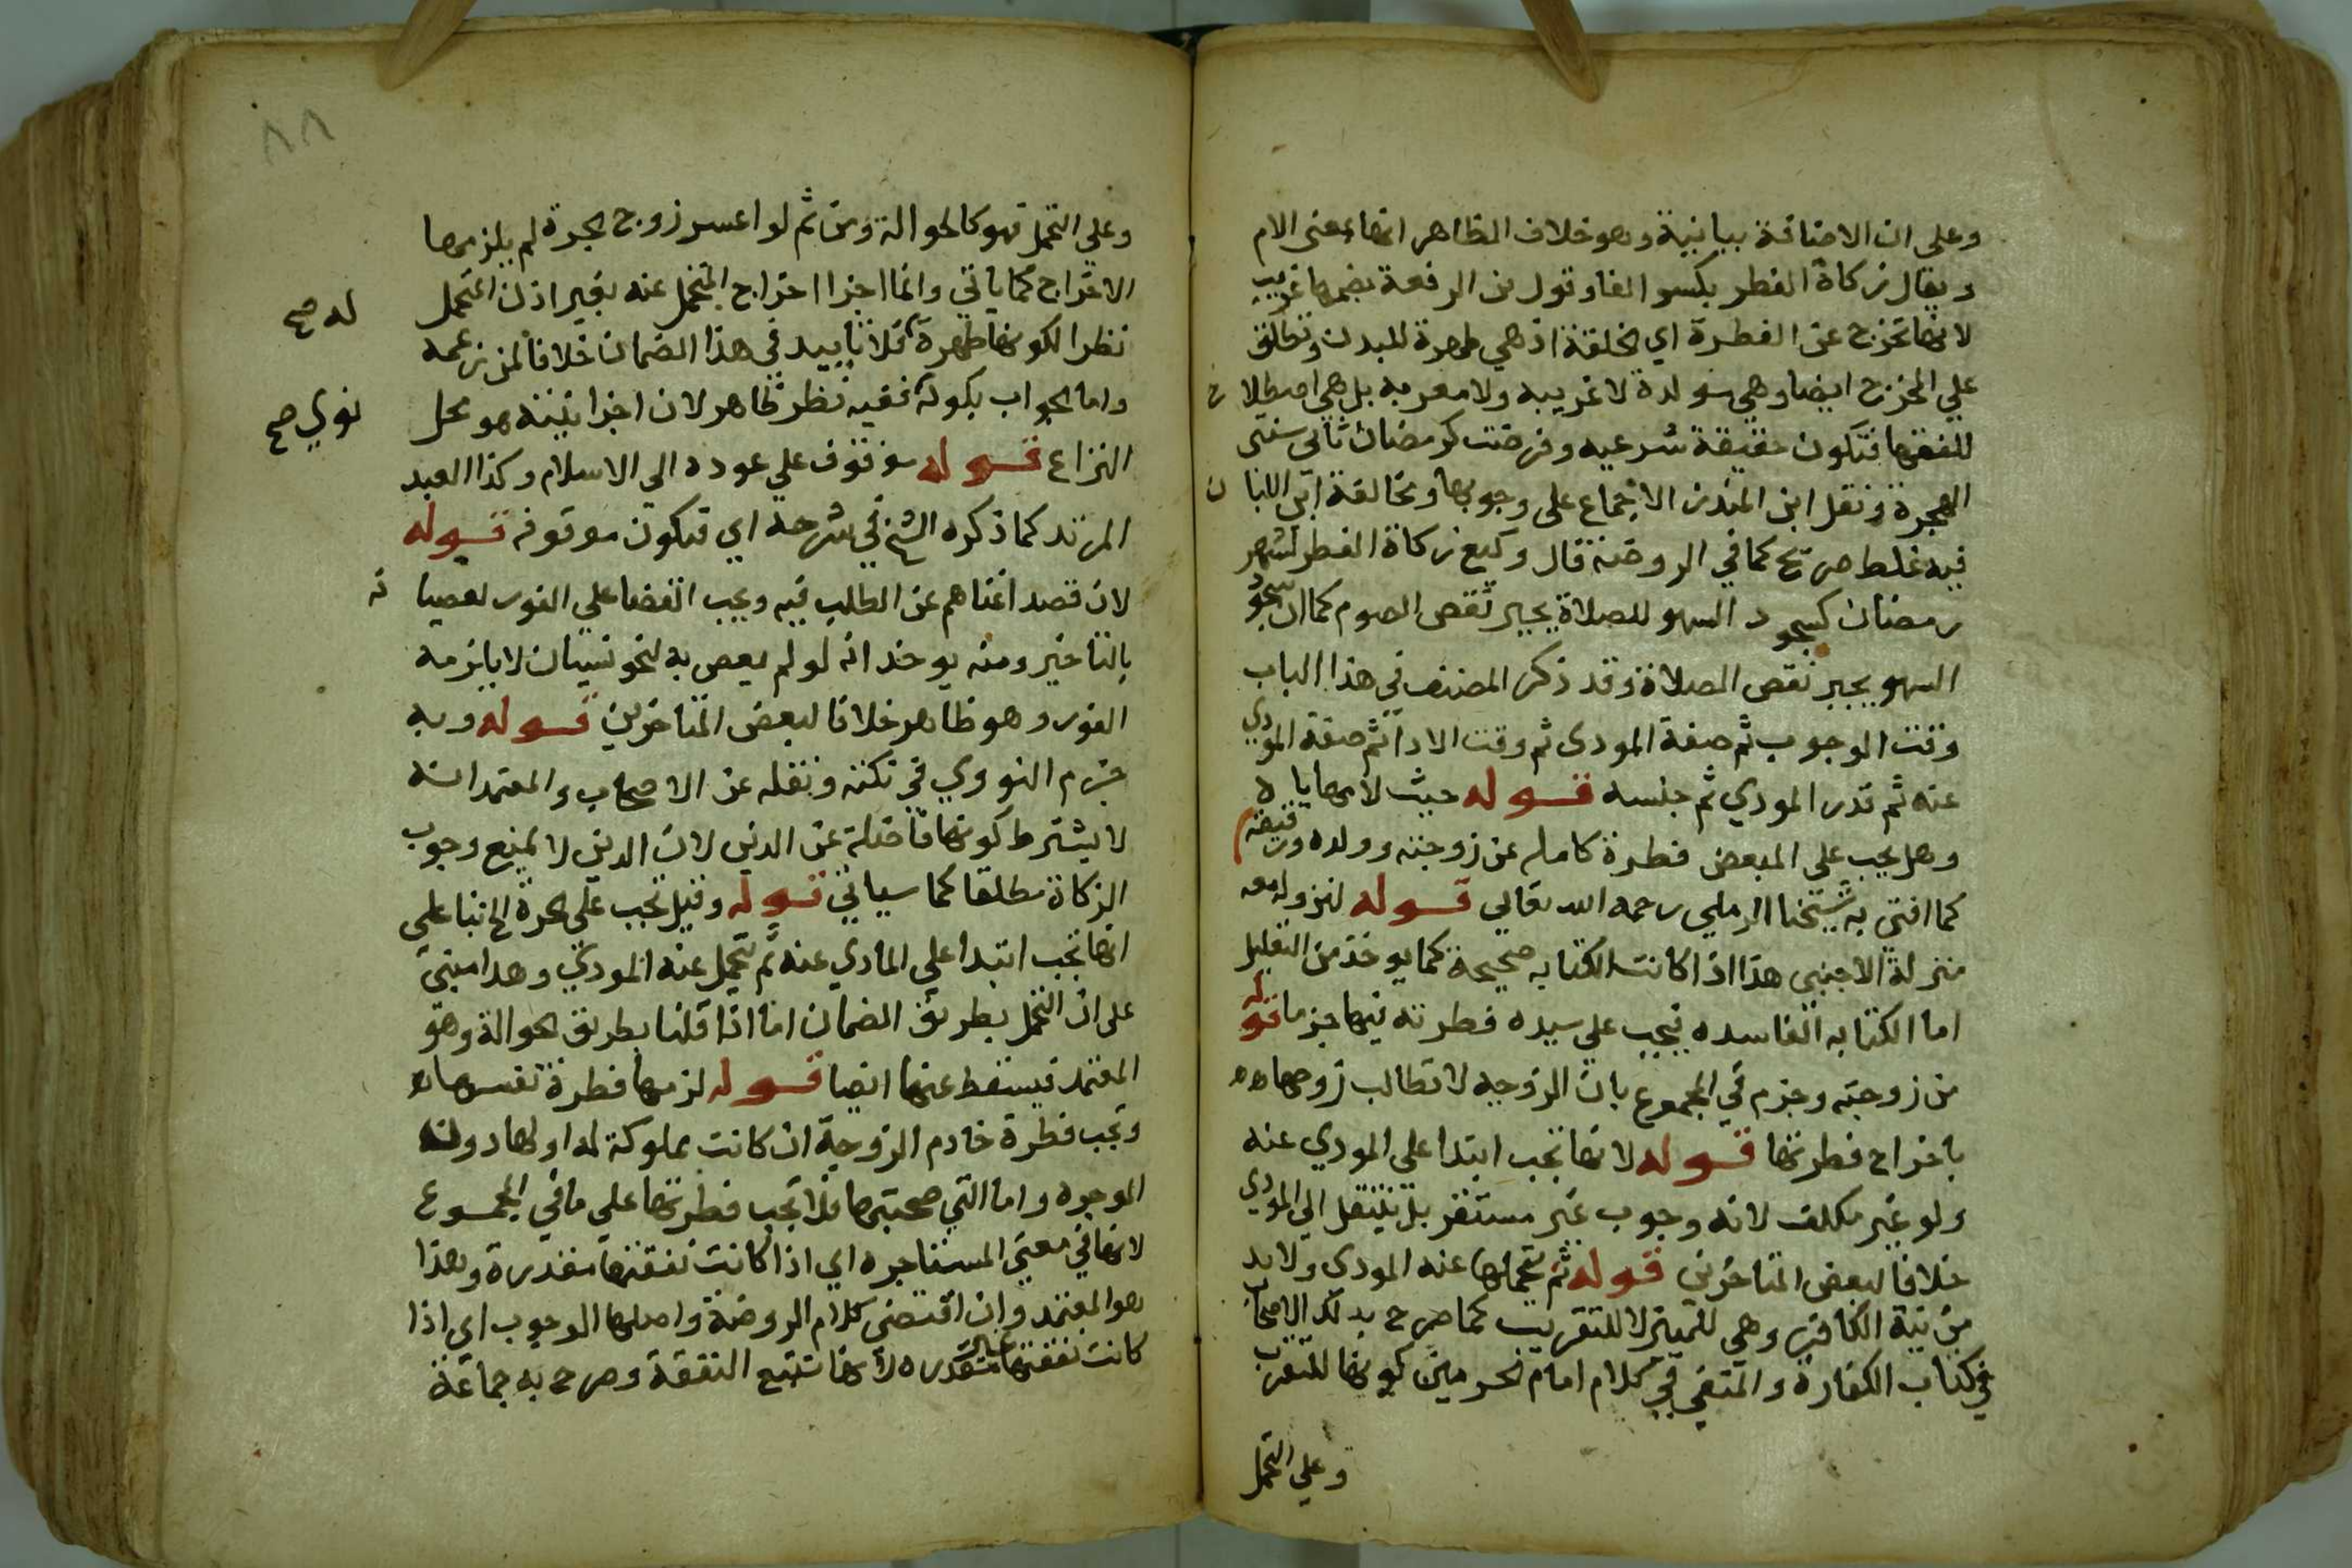 وعلى ان الاضافة بيانية وهو خلاف الظاهر انها بمعنى الام
ويقال زكاة الفطر بكسر الفا وقول بن الرفعة بضمها غريب
لانها تخرج عن الفطرة اي الخلقة اذ هي طهرة للبدن وتطلق
على المخرج ايضا وهي مولدة لا غريبه ولا معربه بل هي اصطلا ح
للفقها فتكون حقيقة شرعيه وفرضت كرمضان ثاني سنتى
الهجرة ونقل ابن المنذر الاجماع على وجوبها ومخالفة ابن اللبا ن
فيه غلط صريح كما في الروضة قال وكيع زكاة الفطر لشهر
رمضان كسجود السهو للصلاة يجبر نقص الصوم كما ان سجود
السهو يجبر نقص الصلاة وقد ذكر المصنف في هذا الباب
وقت الوجوب ثم صفة المودى ثم وقت الادا ثم صفة المودي
عنه ثم قدر المودي ثم جنسه قوله حيث لا مهاياه
وهل يجب على المبعض فطرة كامله عن زوجته وولده ورقيقه
كما افتى به شيخنا الرملي رحمه الله تعالى قوله لنزوله معه
منزلة الاجنبي هذا اذا كانت الكتابه صحيحة كما يوخذ من التعليل
اما الكتابه الفاسده فيجب على سيده فطرته فيها جزما قوله
من زوجته وجزم في المجموع بان الزوجه لا تطالب زوجها
باخراج فطرتها قوله لانها تجب ابتدا على المودي عنه
ولو غير مكلف لانه وجوب غير مستقر بل ينتقل الى المودي
خلافا لبعض المتاخرين قوله ثم يتحملها عنه المودى ولا بد
من نية الكافر وهي للتمييز لا للتقريب كما صرح بذلك الاصحاب
في كتاب الكفارة والمتفي في كلام امام الحرمين كونها للتقرب
وعلى التحمل
٨٨
وعلى التحمل فهو كالحوالة ومن ثم لو اعسر زوج الحرة لم يلزمها
الاخراج كما ياتي وانما اجزا اخراج المتحمل عنه بغير اذن المتحمل
له صح
نظرا لكونها طهرة فلا تاييد في هذا الضمان خلافا لمن زعمه
واما الجواب بكونه ففيه نظر ظاهر لان اجزا نيته هو محل
نوي صح
النزاع قوله موقوف على عوده الى الاسلام وكذا العبد
المرتد كما ذكره الشيخ في شرحه اي فتكون موقوفه قوله
لان قصد اغناهم عن الطلب فيه ويجب القضا على الفور لعصيا نه
بالتاخير ومنه يوخذ انه لو لم يعص به لنحو نسيان لا يلزمه
الفور وهو ظاهر خلافا لبعض المتاخرين قوله وبه
جزم النووي في نكته ونقله عن الاصحاب والمعتمد انه
لا يشترط كونها فاضلة عن الدين لان الدين لا يمنع وجوب
الزكاة مطلقا كما سياتي قوله وقيل تجب على الحرة الخ بنا على
انها تجب ابتدا على المادي عنه ثم يتحمل عنه المودي وهدا مبني
على ان التحمل بطريق الضمان اما اذا قلنا بطريق الحوالة وهو
المعتمد فيسقط عنها ايضا قوله لزمها فطرة نفسها
وتجب فطرة خادم الزوجة ان كانت مملوكة له او لها دون
الموجره واما التي صحبتها فلا تجب فطرتها على ما في المجموع
لانها في معنى المستاجره اي اذا كانت نفقتها مقدرة وهذا
هو المعتمد وان اقتضى كلام الروضة واصلها الوجوب اي اذا
كانت نفقتها مقدره لانها تتبع النفقة وصرح به جماعة